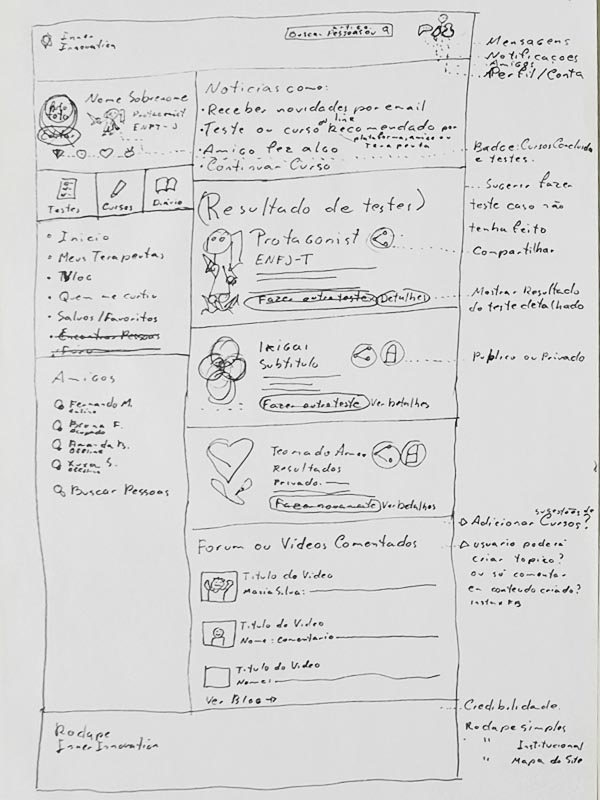 Inner
Innovation
artigo
Buscar Pessoas ou
Mensagens
Notificações
Amigos
Perfil/Conta
Nome Sobrenome
Foto
Protagonist
ENFJ-T
Editar
Testes
Cursos
Diário
Inicio
Meus Terapeutas
Vlog
Quem me curtiu
Salvos/Favoritos
Encontrar Pessoas
Foru
Amigos
Fernando M.
online
Bruna F.
Ocupado
Amanda B.
Offline
Offline
Buscar Pessoas
Noticias como:
Receber novidades por email
Teste ou curso online Recomendado por
plataforma, amigo ou
terapeuta
Amigo fez algo
Continuar Curso
Badge: Cursos Concluido
e testes.
(Resultado de testes)
Protagonist
ENFJ-T
Fazer outro teste
Detalhes
Sugerir fazer
teste caso não
tenha feito
Compartilhar
Mostrar Resultado
do teste detalhado
Ikigai
Subtitulo
Fazer outro teste
Ver Detalhes
Publico ou Privado
Resultados
Privado
Fazer novamente
Ver Detalhes
Forum ou Videos Comentados
Titulo do Video
Maria Silva:
Titulo do Video
Nome: Comentario
Titulo do Video
Nome:
Ver Blog →
sugestões de
Adicionar Cursos?
usuario poderá
criar topico?
ou só comentar
em conteudo criado?
Credibilidade
Rodape simples
" " Institucional
" Mapa do Site
Rodape
Inner Innovation